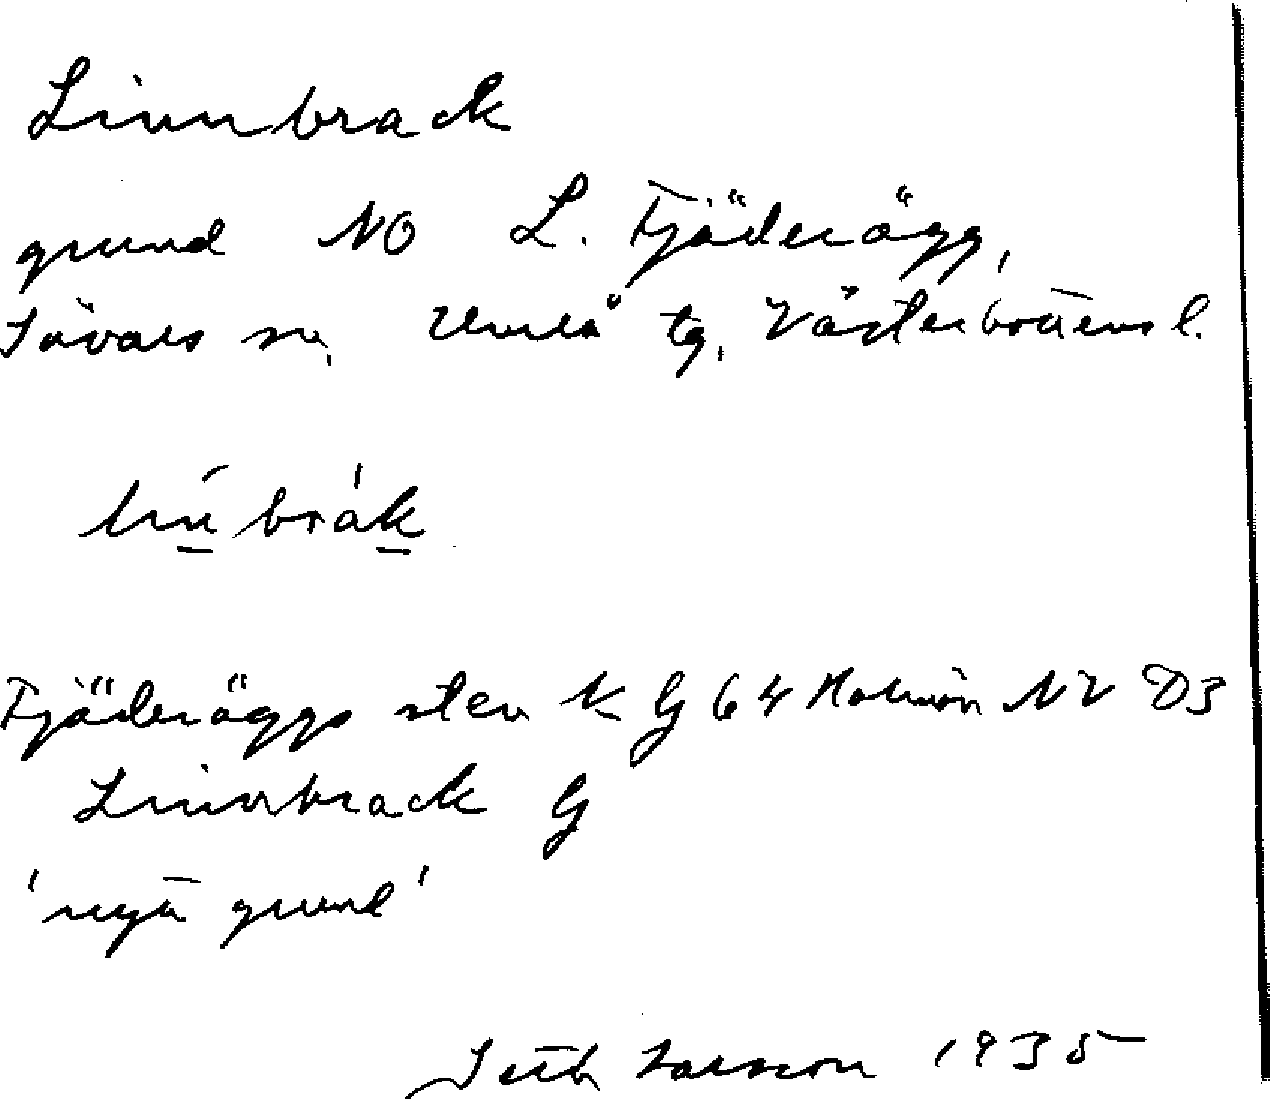 Linnbrack
grund NO L. Fjäderägg,
Sävars sn, Umeå tg, Västerbottens l.
linbrak
Fjäderäggs sten k G 64 Holmön NV D3
Linnbrack G
grund'
Seth Larsson 1935